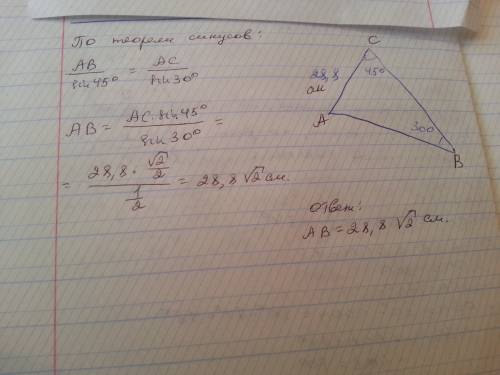 По теореме синусов:
AB/sin45° = AC/sin30°
AB = AC·sin45°/sin30° =
= (28,8 · √2/2)/(1/2) = 28,8 √2 см.
C
45°
28,8
см
A
30°
B
ответ:
AB = 28,8 √2 см.